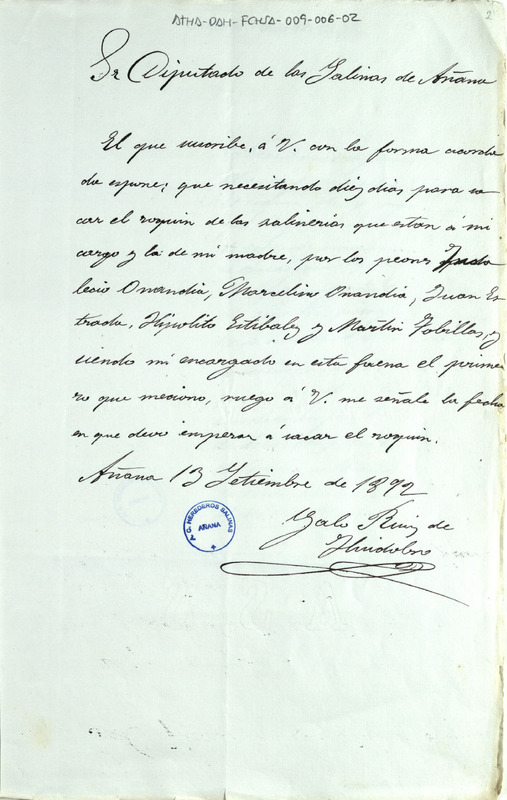 ATHA-DAH-FCHSA-009-006-02
2
Sr Diputado de las Salinas de Añana
El que suscribe, á V. con la forma acorda
da espone; que necesitando diez dias para sa
car el roquin de las salinerias que estan á mi
cargo y la de mi madre, por los peones Inda
lecio Onandia, Marcelino Onandia, Juan Es
trada, Hipolito Estibalez y Martin Tobillas, y
siendo mi encargado en esta faena el prime
ro que meciono, ruego á V. me señale la fecha
en que devo emperar á sacar el roquin.
Añana 13 Setiembre de 1892
Galo Ruiz de
Huidobro
G. HEREDEROS SALINAS
AÑANA